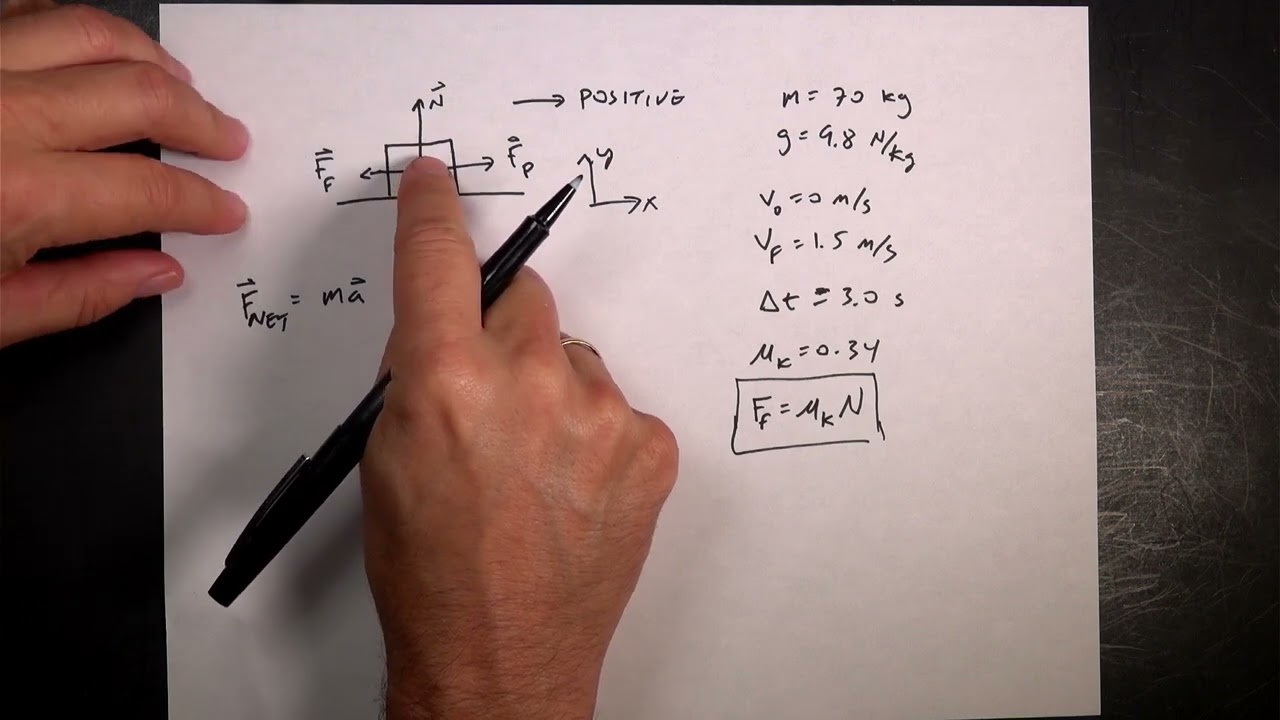 N⃗
→ POSITIVE
F⃗f
F⃗P
y
x
F⃗NET = ma⃗
m = 70 kg
g = 9.8 N/kg
v₀ = 0 m/s
vF = 1.5 m/s
Δt = 3.0 s
μK = 0.34
Ff = μK N